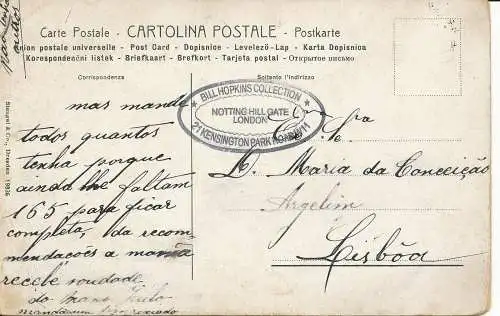 Carte Postale - CARTOLINA POSTALE - Postkarte
ion postale universelle - Post Card - Dopisnice - Levelező-Lap - Karta Dopisnica
Korespondenční lístek - Briefkaart - Brefkort - Tarjeta postal - Открытое письмо
Corrispondenza
Soltanto l'indirizzo
BILL HOPKINS COLLECTION
NOTTING HILL GATE
LONDON
21 KENSINGTON PARK ROAD W11
Stengel & Co., Dresden
mas mande
todos quantos
tenha porque
ainda lhe faltam
165 para ficar
completa, da recom-
mendações a mamã
recebe soudade
do mano
Sra
D. Maria da Conceição
Argelim
Lisbôa